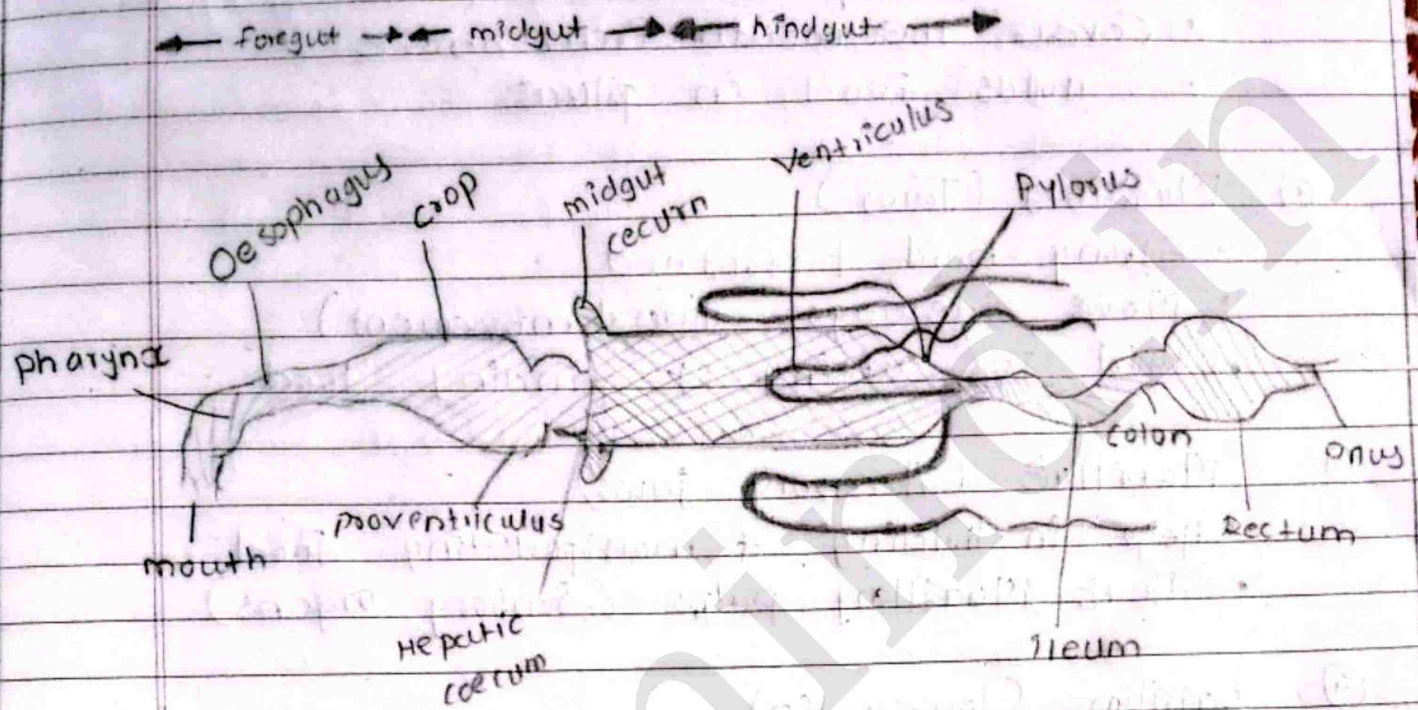 foregut midgut hindgut
Oesophagus
crop
midgut
cecum
ventriculus
Pylorus
pharynx
mouth
proventriculus
Hepatic
coecum
colon
ileum
Rectum
anus